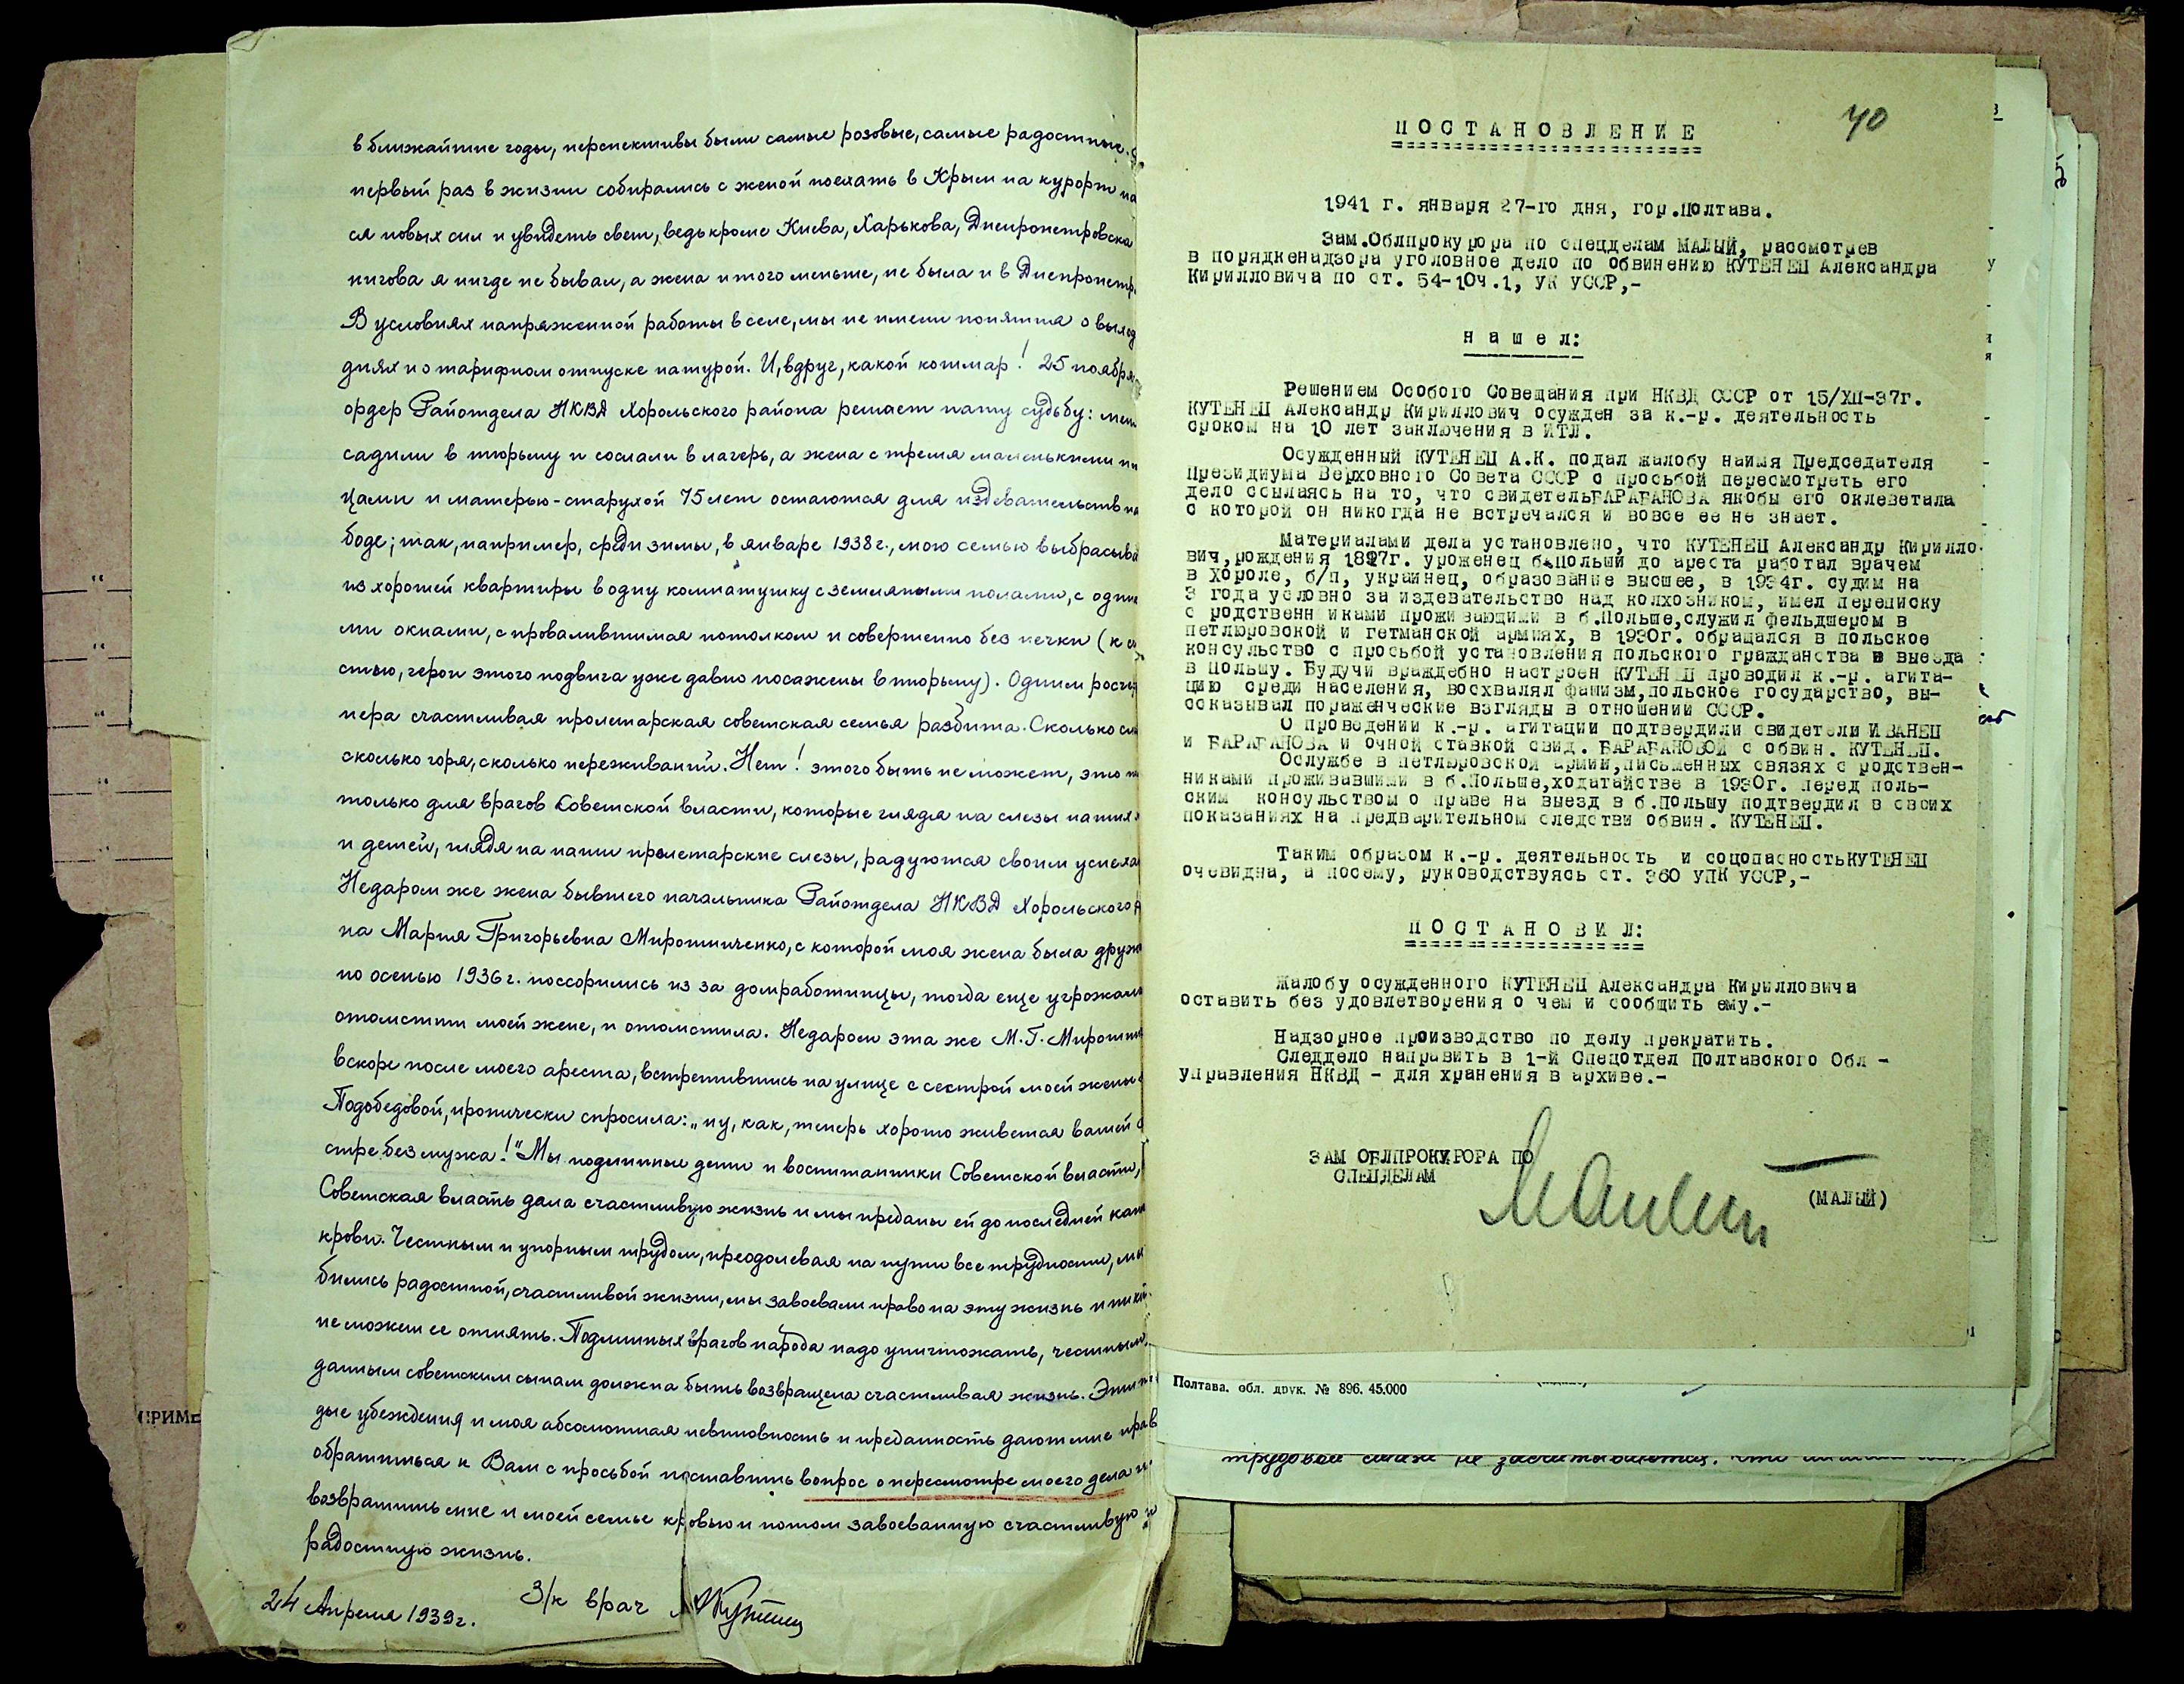 в ближайшие годы, перспективы были самые розовые, самые радостные.
первый раз в жизни собирались с женой поехать в Крым на курорт на
ся новых сил и увидеть свет, ведь кроме Киева, Харькова, Днепропетровска
нигова я нигде не бывал, а жена и того меньше, не была и в Днепропетр
В условиях напряженной работы в селе, мы не имели понятия о выход
днях и о тарифном отпуске натурой. И, вдруг, какой кошмар! 25 ноября
ордер Райотдела НКВД Хорольского района решает нашу судьбу: меня
садили в тюрьму и сослали в лагерь, а жена с тремя маленькими
цами и матерью-старухой 75 лет остаются для издевательств на
боде; так, например, среди зимы, в январе 1938 г., мою семью выбрасыва
из хорошей квартиры в одну комнатушку с земляными полами, с один
ми окнами, с провалившимся потолком и совершенно без печки (к с
стью, герои этого подвига уже давно посажены в тюрьму). Одним росчер
пера счастливая пролетарская советская семья разбита. Сколько сл
сколько горя, сколько переживаний. Нет! этого быть не может, это
только для врагов Советской власти, которые глядя на слезы наших
и детей, глядя на наши пролетарские слезы, радуются своим успеха
Недаром же жена бывшего начальника Райотдела НКВД Хорольского р
на Мария Григорьевна Мирошниченко, с которой моя жена была друж
но осенью 1936 г. поссорились из за домработницы, тогда еще угрожала
отомстить моей жене, и отомстила. Недаром эта же М.Г. Мирошни
вскоре после моего ареста, встретившись на улице с сестрой моей жены
Подобедовой, иронически спросила: „ну, как, теперь хорошо живется вашей с
стре без мужа!" Мы подлинные дети и воспитанники Советской власти,
Советская власть дала счастливую жизнь и мы преданы ей до последней кап
крови. Честным и упорным трудом, преодолевая на пути все трудности, мы
бились радостной, счастливой жизни, мы завоевали право на эту жизнь и
не может ее отнять. Подлинных врагов народа надо уничтожать, честным,
данным советским сынам должна быть возвращена счастливая жизнь. Эти
дые убеждения и моя абсолютная невиновность и преданность дают мне прав
обратиться к Вам с просьбой поставить вопрос о пересмотре моего дела и
возвратить мне и моей семье кровью и потом завоеванную счастливую и
радостную жизнь.
24 Апреля 1939 г. З/к врач АКутенец
40
ПОСТАНОВЛЕНИЕ
1941 г. января 27-го дня, гор.Полтава.
Зам.Облпрокурора по спецделам МАЛЫЙ, рассмотрев
в порядкенадзора уголовное дело по обвинению КУТЕНЕЦ Александра
Кирилловича по ст. 54-10ч.1, УК УССР,-
нашел:
Решением Особого Совещания при НКВД СССР от 15/ХП-37г.
КУТЕНЕЦ Александр Кириллович осужден за к.-р. деятельность
сроком на 10 лет заключения в ИТЛ.
Осужденный КУТЕНЕЦ А.К. подал жалобу наимя Председателя
Президиума Верховного Совета СССР с просьбой пересмотреть его
дело ссылаясь на то, что свидетельБАРАБАНОВА якобы его оклеветала
с которой он никогда не встречался и вовсе ее не знает.
Материалами дела установлено, что КУТЕНЕЦ Александр Кирилло-
вич,рождения 1897г. уроженец б.Польши до ареста работал врачем
в Хороле, б/п, украинец, образование высшее, в 1934г. судим на
3 года условно за издевательство над колхозником, имел переписку
с родственн иками проживающими в б.Польше,служил фельдшером в
петлюровской и гетманской армиях, в 1930г. обращался в польское
консульство с просьбой установления польского гражданства и выезда
в Польшу. Будучи враждебно настроен КУТЕНЕЦ проводил к.-р. агита-
цию среди населения, восхвалял фашизм,польское государство, вы-
сказывал пораженческие взгляды в отношении СССР.
О проведении к.-р. агитации подтвердили свидетели ИВАНЕЦ
и БАРАБАНОВА и очной ставкой свид. БАРАБАНОВОЙ с обвин. КУТЕНЕЦ.
Ослужбе в петлюровской армии,письменных связях с родствен-
никами проживавшими в б.Польше,ходатайстве в 1930г. перед поль-
ским консульством о праве на выезд в б.Польшу подтвердил в своих
показаниях на предварительном следствии обвин. КУТЕНЕЦ.
Таким образом к.-р. деятельность и соцопасностьКУТЕНЕЦ
очевидна, а посему, руководствуясь ст. 360 УПК УССР,-
ПОСТАНОВИЛ:
Жалобу осужденного КУТЕНЕЦ Александра Кирилловича
оставить без удовлетворения о чем и сообщить ему.-
Надзорное производство по делу прекратить.
Следдело направить в 1-й Спецотдел Полтавского Обл -
управления НКВД - для хранения в архиве.-
ЗАМ ОБЛПРОКУРОРА ПО
СПЕЦДЕЛАМ
Малый
(МАЛЫЙ)
Полтава, обл. друк. № 896. 45.000
ПРИМЕ